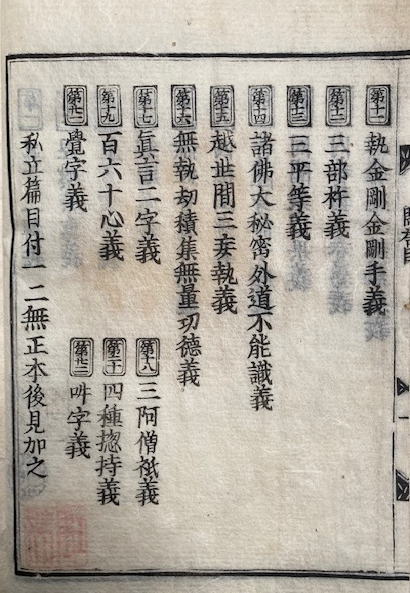 第十一 執金剛金剛手義
第十二 三部杵義
第十三 三平等義
第十四 諸佛大秘宻外道不能識義
第十五 越世間三妄執義
第十六 無執劫積集無量功德義
第十七 眞言二字義 第十八 三阿僧祇義
第十九 百六十心義 第二十 四種揔持義
第廿一 覺字義 第廿二 吽字義
私立篇目付一二無正本後見加之